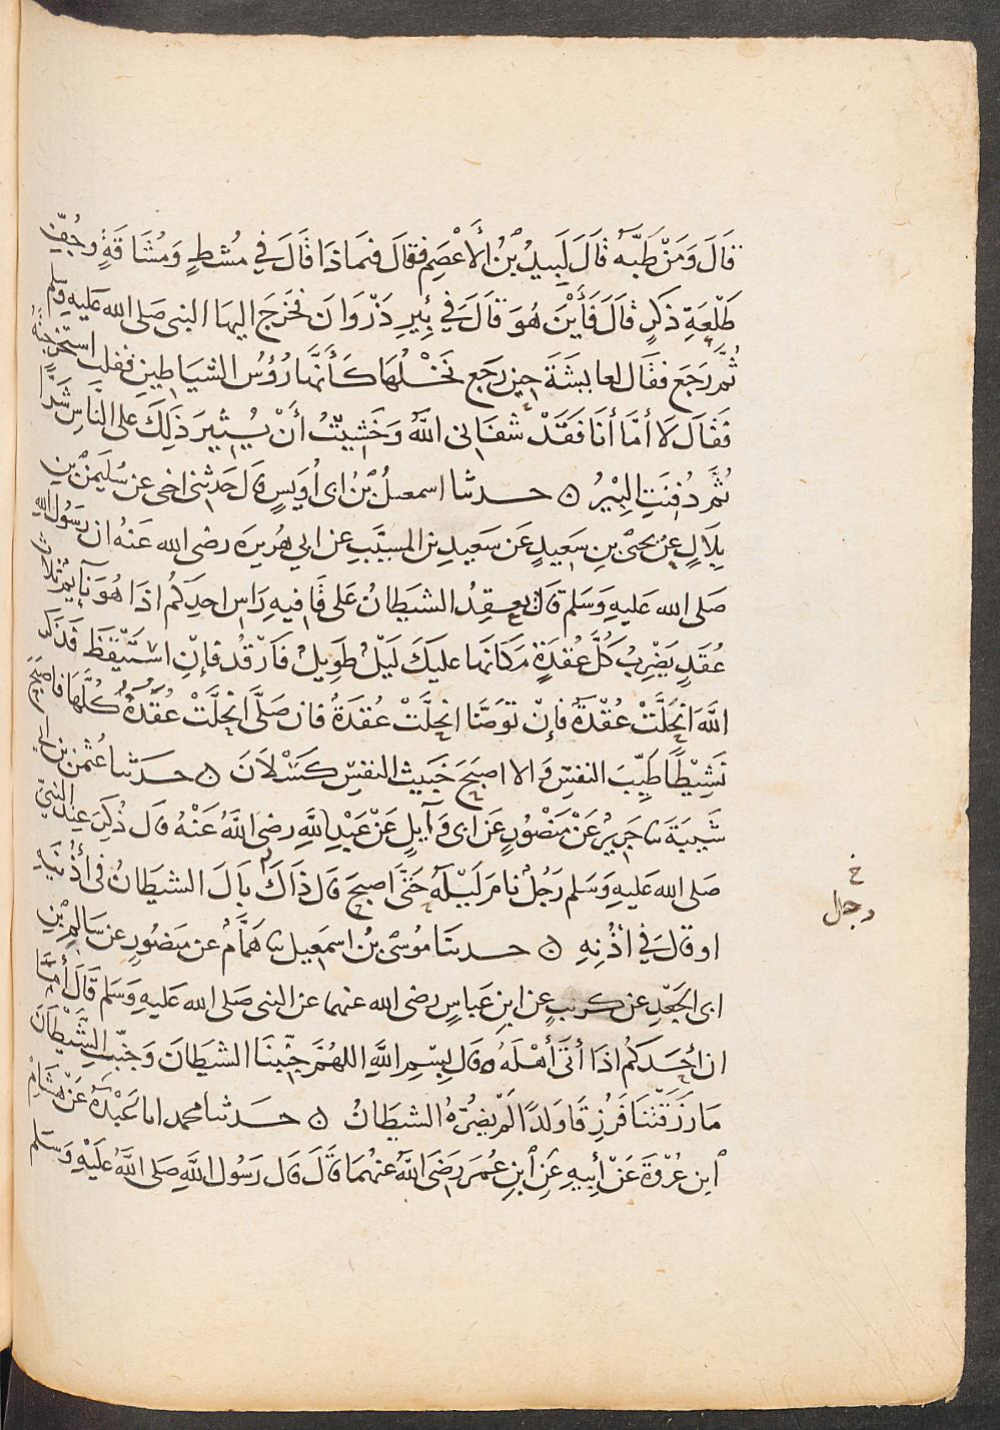 قَالَ وَمَنْ طَبَّه قَالَ لَبِيدُ بْنُ الْأَعْصَمِ فقالَ فَمَاذَا قَالَ فِي مُشطٍ وَمُشَاقَةٍ وجُفِّ
طَلْعَةِ ذَكَرٍ قَالَ فَأَيْنَ هُوَ قَالَ فِي بِئْرِ ذَرْوَانَ فخَرَجَ اليهَا النبى صَلى الله عَليهِ وسلم
ثُمَّ رَجَع فقَال لعايشَةَ حِين رَجَع نَخْلُهَا كَأَنَّهَا رُؤُسُ الشيَاطِينِ فقلت استَخْرَجتَهُ
فَقَالَ لَا أَمَّا أَنَا فَقَدْ شَفَانِى اللَّهُ وَخَشِيتُ أَنْ يُثِيرَ ذَلِكَ عَلى النَّاسِ شَرًّا
ثُمَّ دُفِنَتِ البِيرُ ۝ حدثنا اسمعيلُ بْنُ ابى أُوَيسٍ قَال حَدثنى اخى عن سُلَيمٰنَ بْنِ
بِلَالٍ عن يحيَى بنِ سَعِيدٍ عَن سَعِيدِ بن المسيَّبِ عن ابي هُريرَه رضى الله عَنهُ ان رسُول الله
صَلى الله عَليهِ وَسَلم قَال يعقِدُ الشيطَانُ عَلى قَافِيهِ رَاسِ احدِكُم اذَا هُوَ نَايمٌ ثلاث
عُقَدٍ يَضْرِبُ كُلَّ عُقدَةٍ مَكَانَها عليكَ لَيْلٌ طَوِيلٌ فَارْقُدْ فَإِنِ اسْتَيْقَظَ فَذكَر
اللَّهَ انحَلَّتْ عُقْدَةٌ فَإِنْ تَوَضَّا انحلَّتْ عُقدَةٌ فان صَلَّى انْحَلَّتْ عُقَدُهُ كُلُّهَا فاصْبَحَ
نَشِيطًا طَيِّبَ النفسِ وَالا اصبَحَ خَبيث النفسِ كَسْلَانَ ۝ حَدثنا عُثمٰن بن ابى
شَيبَةَ نا جَرِيرٌ عَنْ مَنْصُورٍ عَن ابى وَآيلٍ عَنْ عَبْدِ اللَّهِ رضى اللَّهُ عَنْهُ قَال ذُكِرَ عِند النبىّ
صَلى الله عَليهِ وَسَلم رَجُلٌ نامَ لَيْلَهُ حَتَّى اصبحَ قَال ذَاكَ بَالَ الشيطَانُ فى أُذُنَيهِ
او قال فِي أُذُنِهِ ۝ حدثنا مُوسَى بْنُ اسمَعيل نا هَمَّامٌ عن منصُورٍ عن سَالِمِ بْنِ
ابى الجَعْدِ عن كريبٍ عن ابنِ عَباسٍ رضى الله عنهما عن النبى صَلى الله عَليهِ وَسَلم قَالَ أَمَا
ان أَحَدَكُم اذَا أَتَى أَهْلَهُ وقَال بِسْمِ اللَّهِ اللهُمَّ جَنِّبْنَا الشيطَانَ وَجَنِّبِ الشَّيْطَانَ
مَا رَزَقْتَنَا فَرُزِقَا وَلَدًا لَمْ يَضُرّهُ الشيطَانُ ۝ حَدثنا محمد انا عَبْدَةُ عَنْ هشَامِ
ابن عُرْوَةَ عَنْ أَبِيهِ عَنِ ابنِ عُمَرَ رَضِىَ اللَّهُ عَنهُمَا قَالَ قَال رَسُول اللَّهِ صَلى اللَّهُ عَلَيْهِ وَسَلم
خ
رجال